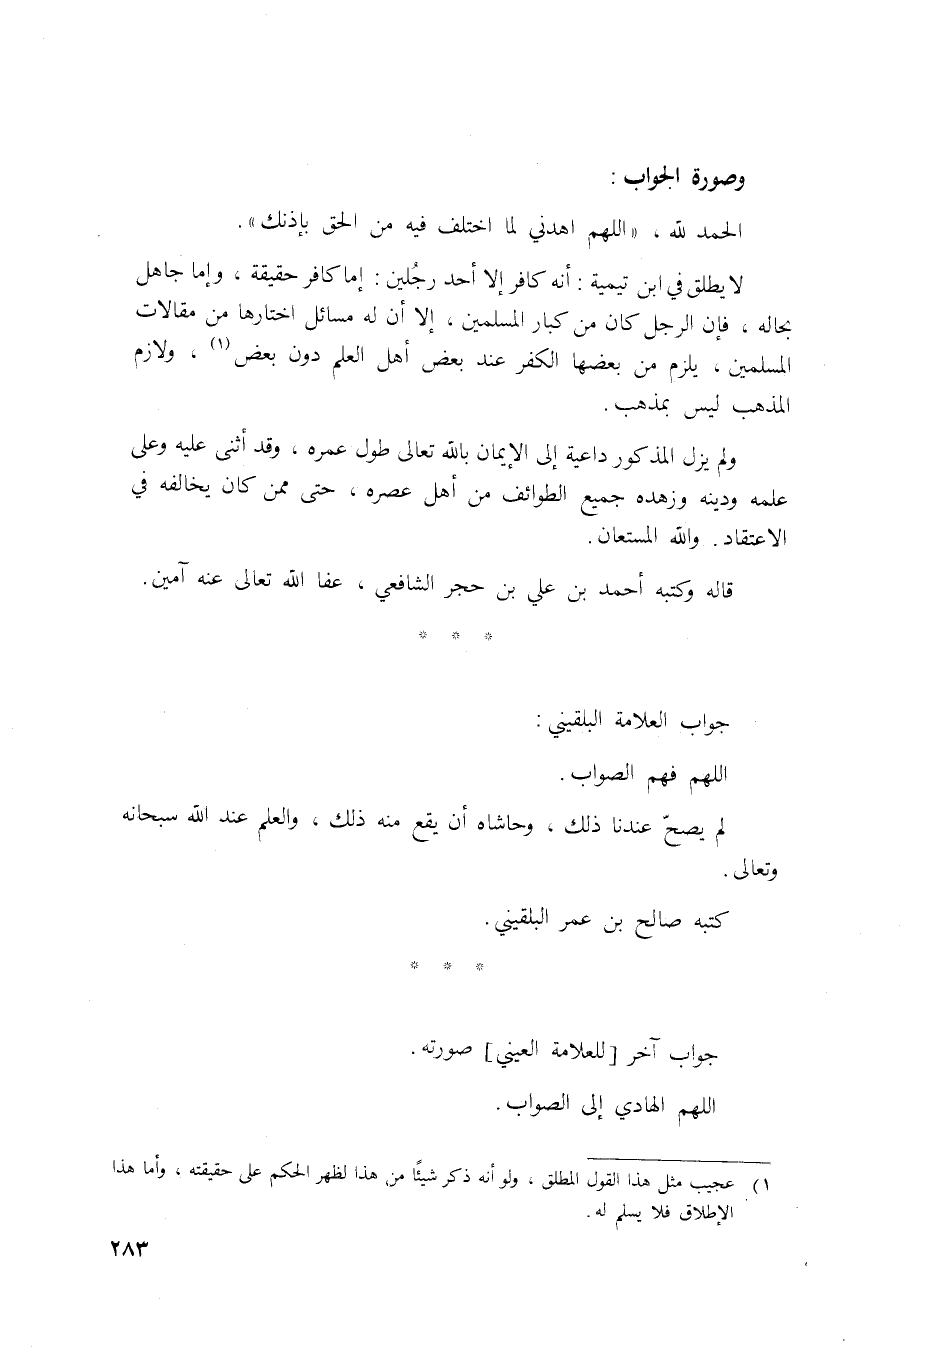 وصورة الجواب :
الحمد لله ، «اللهم اهدني لما اختلف فيه من الحق بإذنك» .
لا يطلق في ابن تيمية : أنه كافر إلا أحد رجُلين : إما كافر حقيقة ، وإما جاهل
بحاله ، فإن الرجل كان من كبار المسلمين ، إلا أن له مسائل اختارها من مقالات
المسلمين ، يلزم من بعضها الكفر عند بعض أهل العلم دون بعض(١) ، ولازم
المذهب ليس بمذهب .
ولم يزل المذكور داعية إلى الإيمان بالله تعالى طول عمره ، وقد أثنى عليه وعلى
علمه ودينه وزهده جميع الطوائف من أهل عصره ، حتى ممن كان يخالفه في
الاعتقاد . والله المستعان .
قاله وكتبه أحمد بن علي بن حجر الشافعي ، عفا الله تعالى عنه آمين .
* * *
جواب العلامة البلقيني :
اللهم فهم الصواب .
لم يصحّ عندنا ذلك ، وحاشاه أن يقع منه ذلك ، والعلم عند الله سبحانه
وتعالى .
كتبه صالح بن عمر البلقيني .
* * *
جواب آخر [للعلامة العيني] صورته .
اللهم الهادي إلى الصواب .
١) عجيب مثل هذا القول المطلق ، ولو أنه ذكر شيئًا من هذا لظهر الحكم على حقيقته ، وأما هذا
الإطلاق فلا يسلم له .
٢٨٣